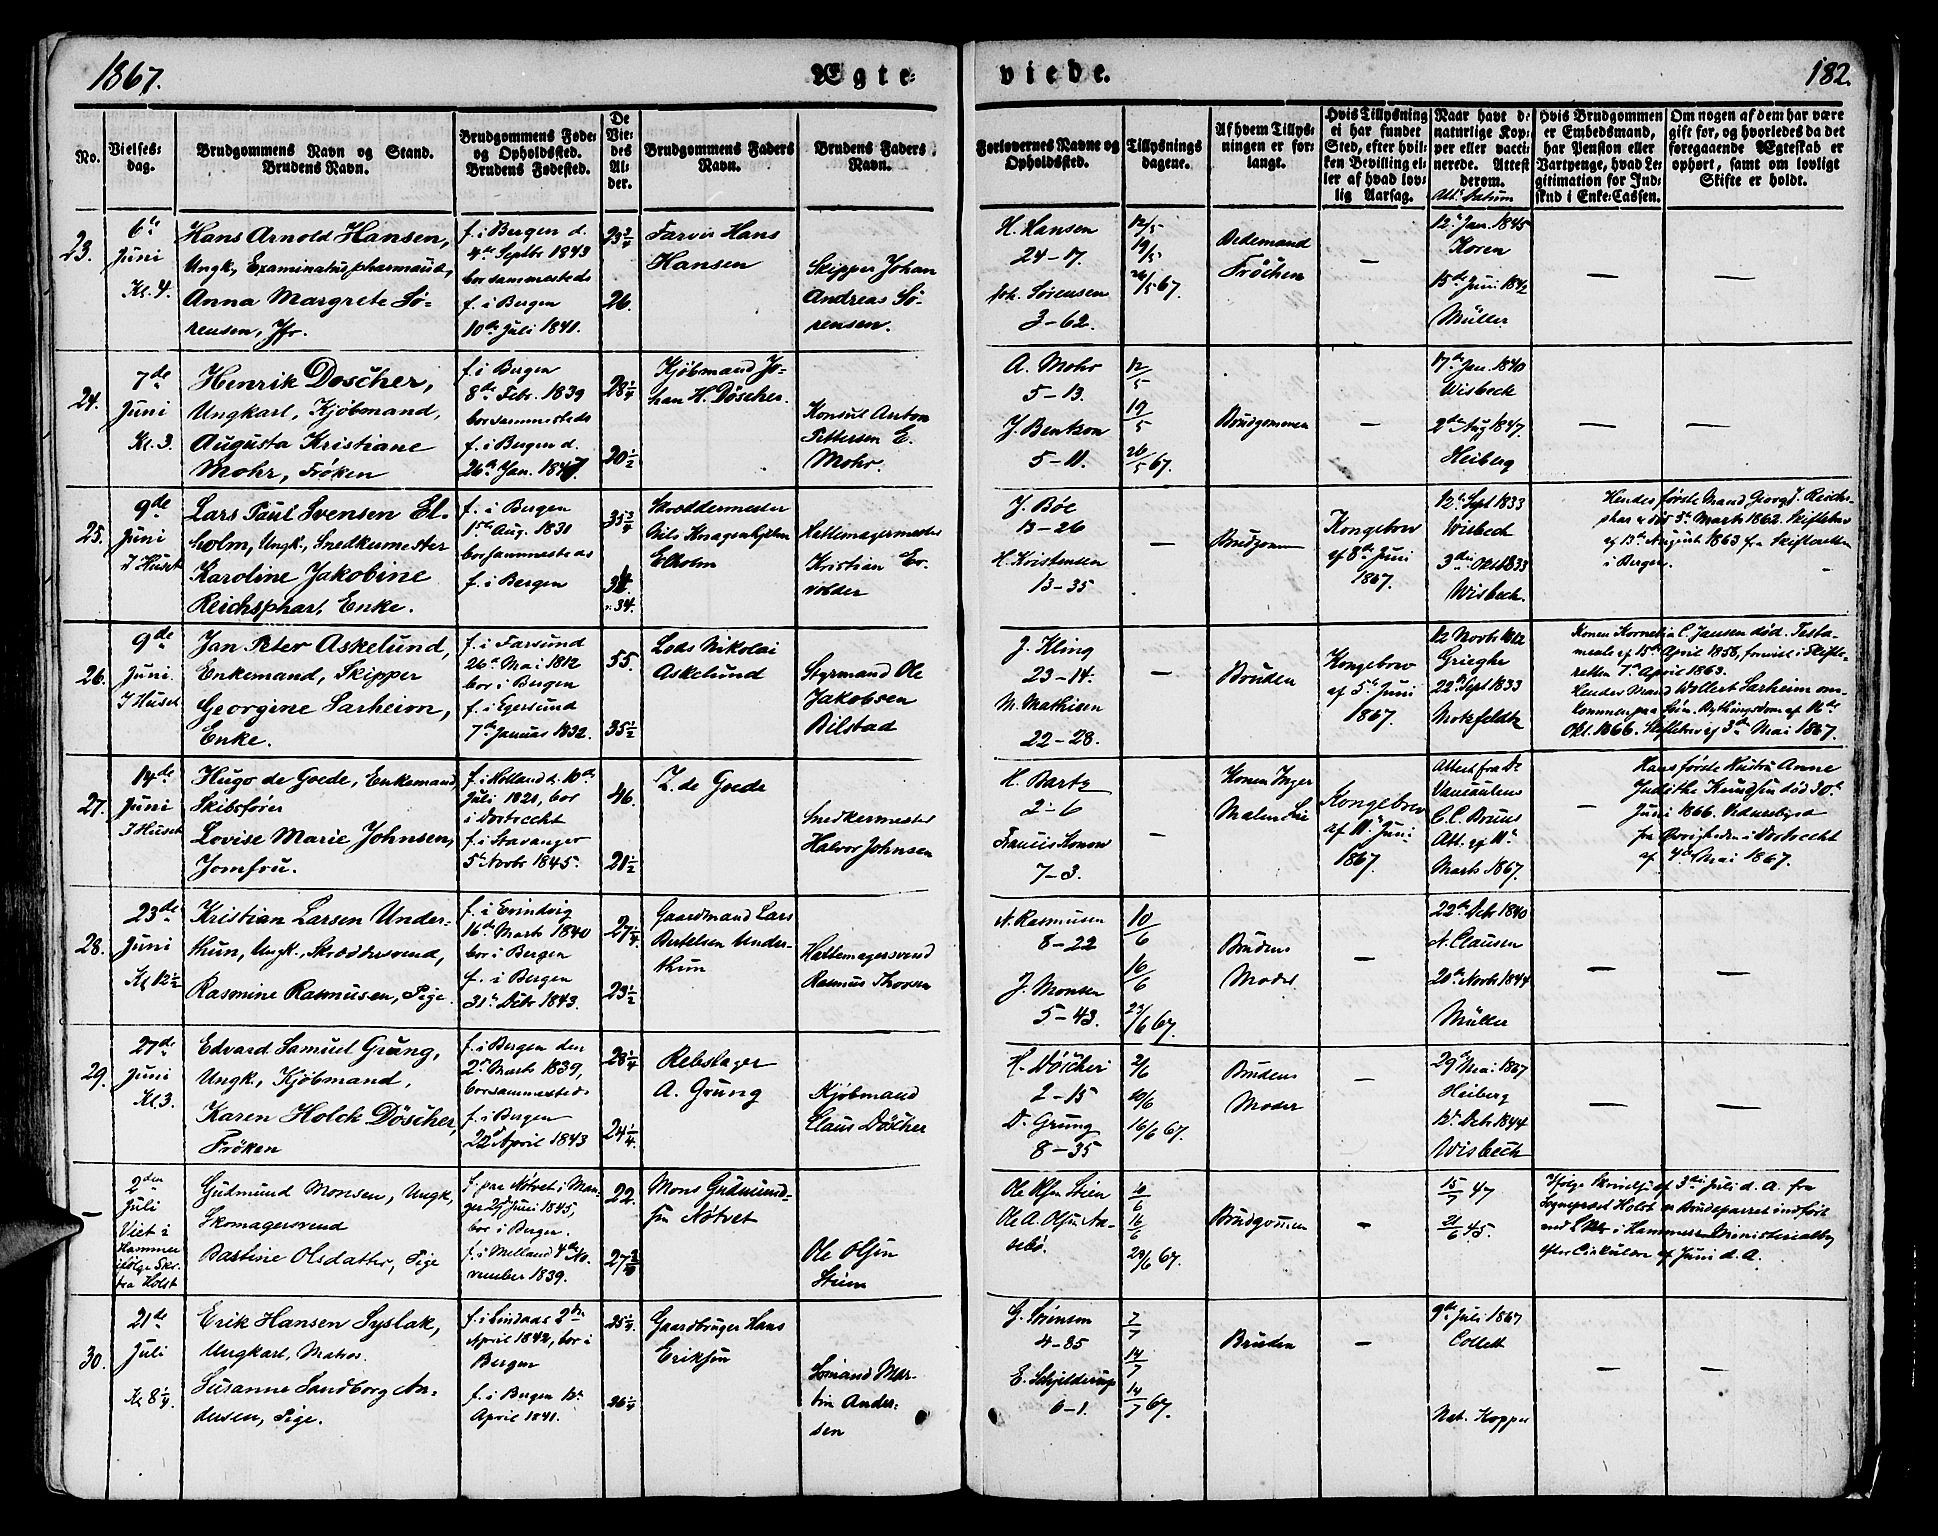 1867.
Ægte-
viede.
182.
No.
Vielses-
dag.
Brudgommens Navn og Stand.
Brudens Navn.
Brudgommens Føde-
og Opholdssted.
Brudens Fødested.
De
Vie-
des
Al-
der.
Brudgommens Faders
Navn.
Brudens Faders
Navn.
Forlovernes Navne og
Opholdssted.
Tillysnings
dagene.
Af hvem Tillys-
ningen er for-
langt.
Hvis Tillysning
ei har fundet
Sted, efter hvil-
ken Bevilling el-
ler af hvad lov-
lig Aarsag.
Naar havt de
naturlige Kop-
per eller vacci-
nerede. Attest
derom.
Att. Datum
Hvis Brudgommen
er Embedsmand,
har Pension eller
Vartpenge, hvad Le-
gitimation for Ind-
skud i Enke-Cassen.
Om nogen af dem har være
gift før, og hvorledes da det
foregaaende Ægteskab er
ophørt, samt om lovligt
Skifte er holdt.
23.
6te
Juni
Kl. 4.
Hans Arnold Hansen,
Ungk., Examinatus pharmaut,
Anna Margrete Sø-
rensen, Jfr.
f. i Bergen d.
4de Septbr 1843
bor sammesteds
f. i Bergen
10de Juli 1841.
23 3/4
26.
Farver Hans
Hansen
Skipper Johan
Andreas Sø-
rensen.
H. Hansen
24-17.
Joh. Sørensen
3-62.
12/5
19/5
26/5 67.
Bedemand
Frøchen
—
12te Jan. 1845
Koren
15de Juni 1842
Müller
—
—
24.
7de
Juni
Kl. 3.
Henrik Doscher,
Ungkarl, Kjøbmand,
Augusta Kristiane
Mohr, Frøken
f. i Bergen
8de Febr. 1839
bor sammesteds
f. i Bergen d.
26de Jan. 1847.
28 1/4
20 1/2
Kjøbmand Jo-
han H. Döscher.
Konsul Anton
Pettersen E.
Mohr.
A. Mohr
5-13.
J. Bentzon
5-11.
12/5
19/5
26/5 67.
Brudgommen
—
17de Jan. 1840
Wisbech
2de Aug 1847.
Heiberg
—
—
25.
9de
Juni
I Huset
Lars Paul Svensen El-
holm, Ungk., Snedkermester
Karoline Jakobine
Reichsphart, Enke.
f. i Bergen
15de Aug. 1831
bor sammesteds
f. i Bergen
35 3/4
34.
Skræddermester
Nils Knagenhjelm
Elholm
Hattemagermester
Kristian Ev-
volder
J. Böe
13-26
H. Kristensen
13-35
—
Brudgommen
Kongebrev
af 8de Juni
1867.
12te Sept 1833
Wisbech
3die Okt 1833
Wisbech.
Hendes første Mand Georg J. Reichs-
phar + død 5te Marts 1862. Skiftebrev
af 13de August 1863 fra Skifteretten
i Bergen.
26.
9de
Juni.
I Huset
Jan Peter Askelund,
Enkemand, Skipper
Georgine Sarheim,
Enke.
f. i Farsund
26de Mai 1812
bor i Bergen
f. i Egersund
7de Januar 1832.
55.
35 1/2
Lods Nikolai
Askelund
Styrmand Ole
Jakobsen
Bilstad
J. Kling
23-14.
M. Mathisen
22-28.
—
Bruden
Kongebrev
af 5te Juni
1867.
12 Novbr 1812
Grieghe
22de Sept 1833
Motzfeldtz
Konen Kornelia C. Jansen død. Testa-
mente af 15de April 1858, forevist i Skifte-
retten 7de April 1863.
Hendes Mand Wollert Sarheim om-
kommen paa Søen. Bythingsdom af 16de
Okt. 1866. Skiftebrev af 3die Mai 1867.
27.
14de
Juni
I Huset
Hugo de Goede, Enkemand,
Skibsfører
Lovise Marie Johnsen,
Jomfru.
f. i Holland d. 16de
Juli 1821, bor
i Dortrecht
f. i Stavanger
5te Novbr 1845.
46.
21 1/2
Z. de Goede
Snedkermester
Halvor Johnsen
H. Bartz
2-6
Francis Konow
7-3.
—
Konen Inger
Malen Lie
Kongebrev
af 11te Juni
1867.
Attest fra Dr
C. C. Bruns
Att. af 11te
Marts 1867.
—
Hans første Hustru Anne
Judithe død 30te
Juni 1866. Vidnesbyrd
fra Øvrigheden i Dortrecht
af 4de Mai 1867.
28.
23de
Juni
Kl 12 1/2
Kristian Larsen Under-
thun, Ungk., Skræddersvend,
Rasmine Rasmusen, Pige.
f. i Evindvig
16de Marts 1840
bor i Bergen
f. i Bergen
31te Decbr 1843.
27 1/4
23 1/2
Gaardmand Lars
Bertelsen Under-
thun
Hattemagersvend
Rasmus Thoresen
N. Rasmusen
8-22
J. Monsen
5-43.
10/6
16/6
23/6 67.
Brudens
Moder
—
22de Debr 1840
N. Clausen
20de Novbr 1844
Müller
—
—
29.
27de
Juni
Kl. 3.
Edvard Samuel Grung,
Ungk., Kjøbmand,
Karen Holck Döscher,
Frøken
f. i Bergen den
2den Marts 1839,
bor sammesteds
f. i Bergen
22de April 1843
28 1/4
24 1/4.
Rebslager
A. Grung
Kjøbmand
Claus Döscher
H. Döscher
2-15
D. Grung
8-35
2/6
10/6
16/6 67.
Brudens
Moder
—
29de Mai 1867
Heiberg
12te Debr 1844
Wisbech
—
—
—
2den
Juli
Viet i
Hammer
ifølge Skr.
fra Holst
Gudmund Monsen, Ungk,
Skomagersvend
Bartine Olsdatter, Pige
f. paa Nøtvet i Man-
ger 25de Juni 1845,
bor i Bergen.
f. i Melland 4de No-
vember 1839.
22.
27 2/3
Mons Gudmund-
sen Nøtvet
Ole Olsen
Steim
Ole Olsen Stien
Ole A. Olsen Aa-
sebø.
10/6
16/6
23/6 67.
Brudgommen
—
15/7 47
21/6 45.
Ifølge Skrivelse af 3die Juli d. A. fra
Sogneprest Holst er Brudeparret indført
med i Hammers Ministerialbog
efter Cirkulære af Juni d. A.
30.
21de
Juli
Kl 8 1/4.
Erik Hansen Syslak,
Ungkarl, Matros.
Susanne Sandborg An-
dersen, Pige.
f. i Lindaas 2den
April 1842, bor i
Bergen
f. i Bergen 12te
April 1841.
25 1/4.
26 1/4
Gaardbruger Hans
Eriksen
Sømand Mar-
tin Ander-
sen
G. Sørensen
4-85
E. Schjelderup
6-1.
7/7
14/7
14/7 67.
Bruden
—
9de Juli 1867
Collett
Nat. Kopper
—
—